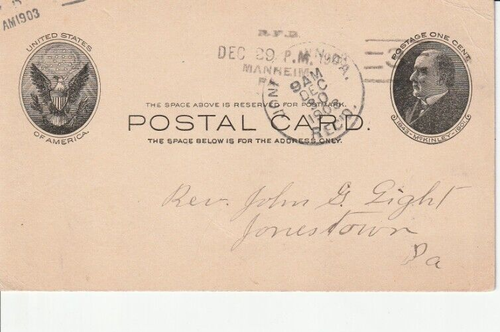 AM1903
R.F.D.
UNITED STATES
OF AMERICA.
DEC 29 P.M.
MANHEIM
PA.
9 AM
DEC
30
REC'D.
POSTAGE ONE CENT.
1843-McKINLEY-1901
THE SPACE ABOVE IS RESERVED FOR POSTMARK.
POSTAL CARD.
THE SPACE BELOW IS FOR THE ADDRESS ONLY.
Rev. John G. Light
Jonestown
Pa